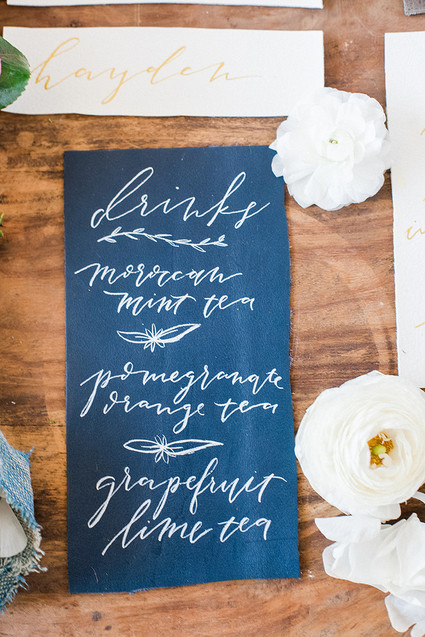 hayden
drinks
moroccan
mint tea
pomegranate
orange tea
grapefruit
lime tea